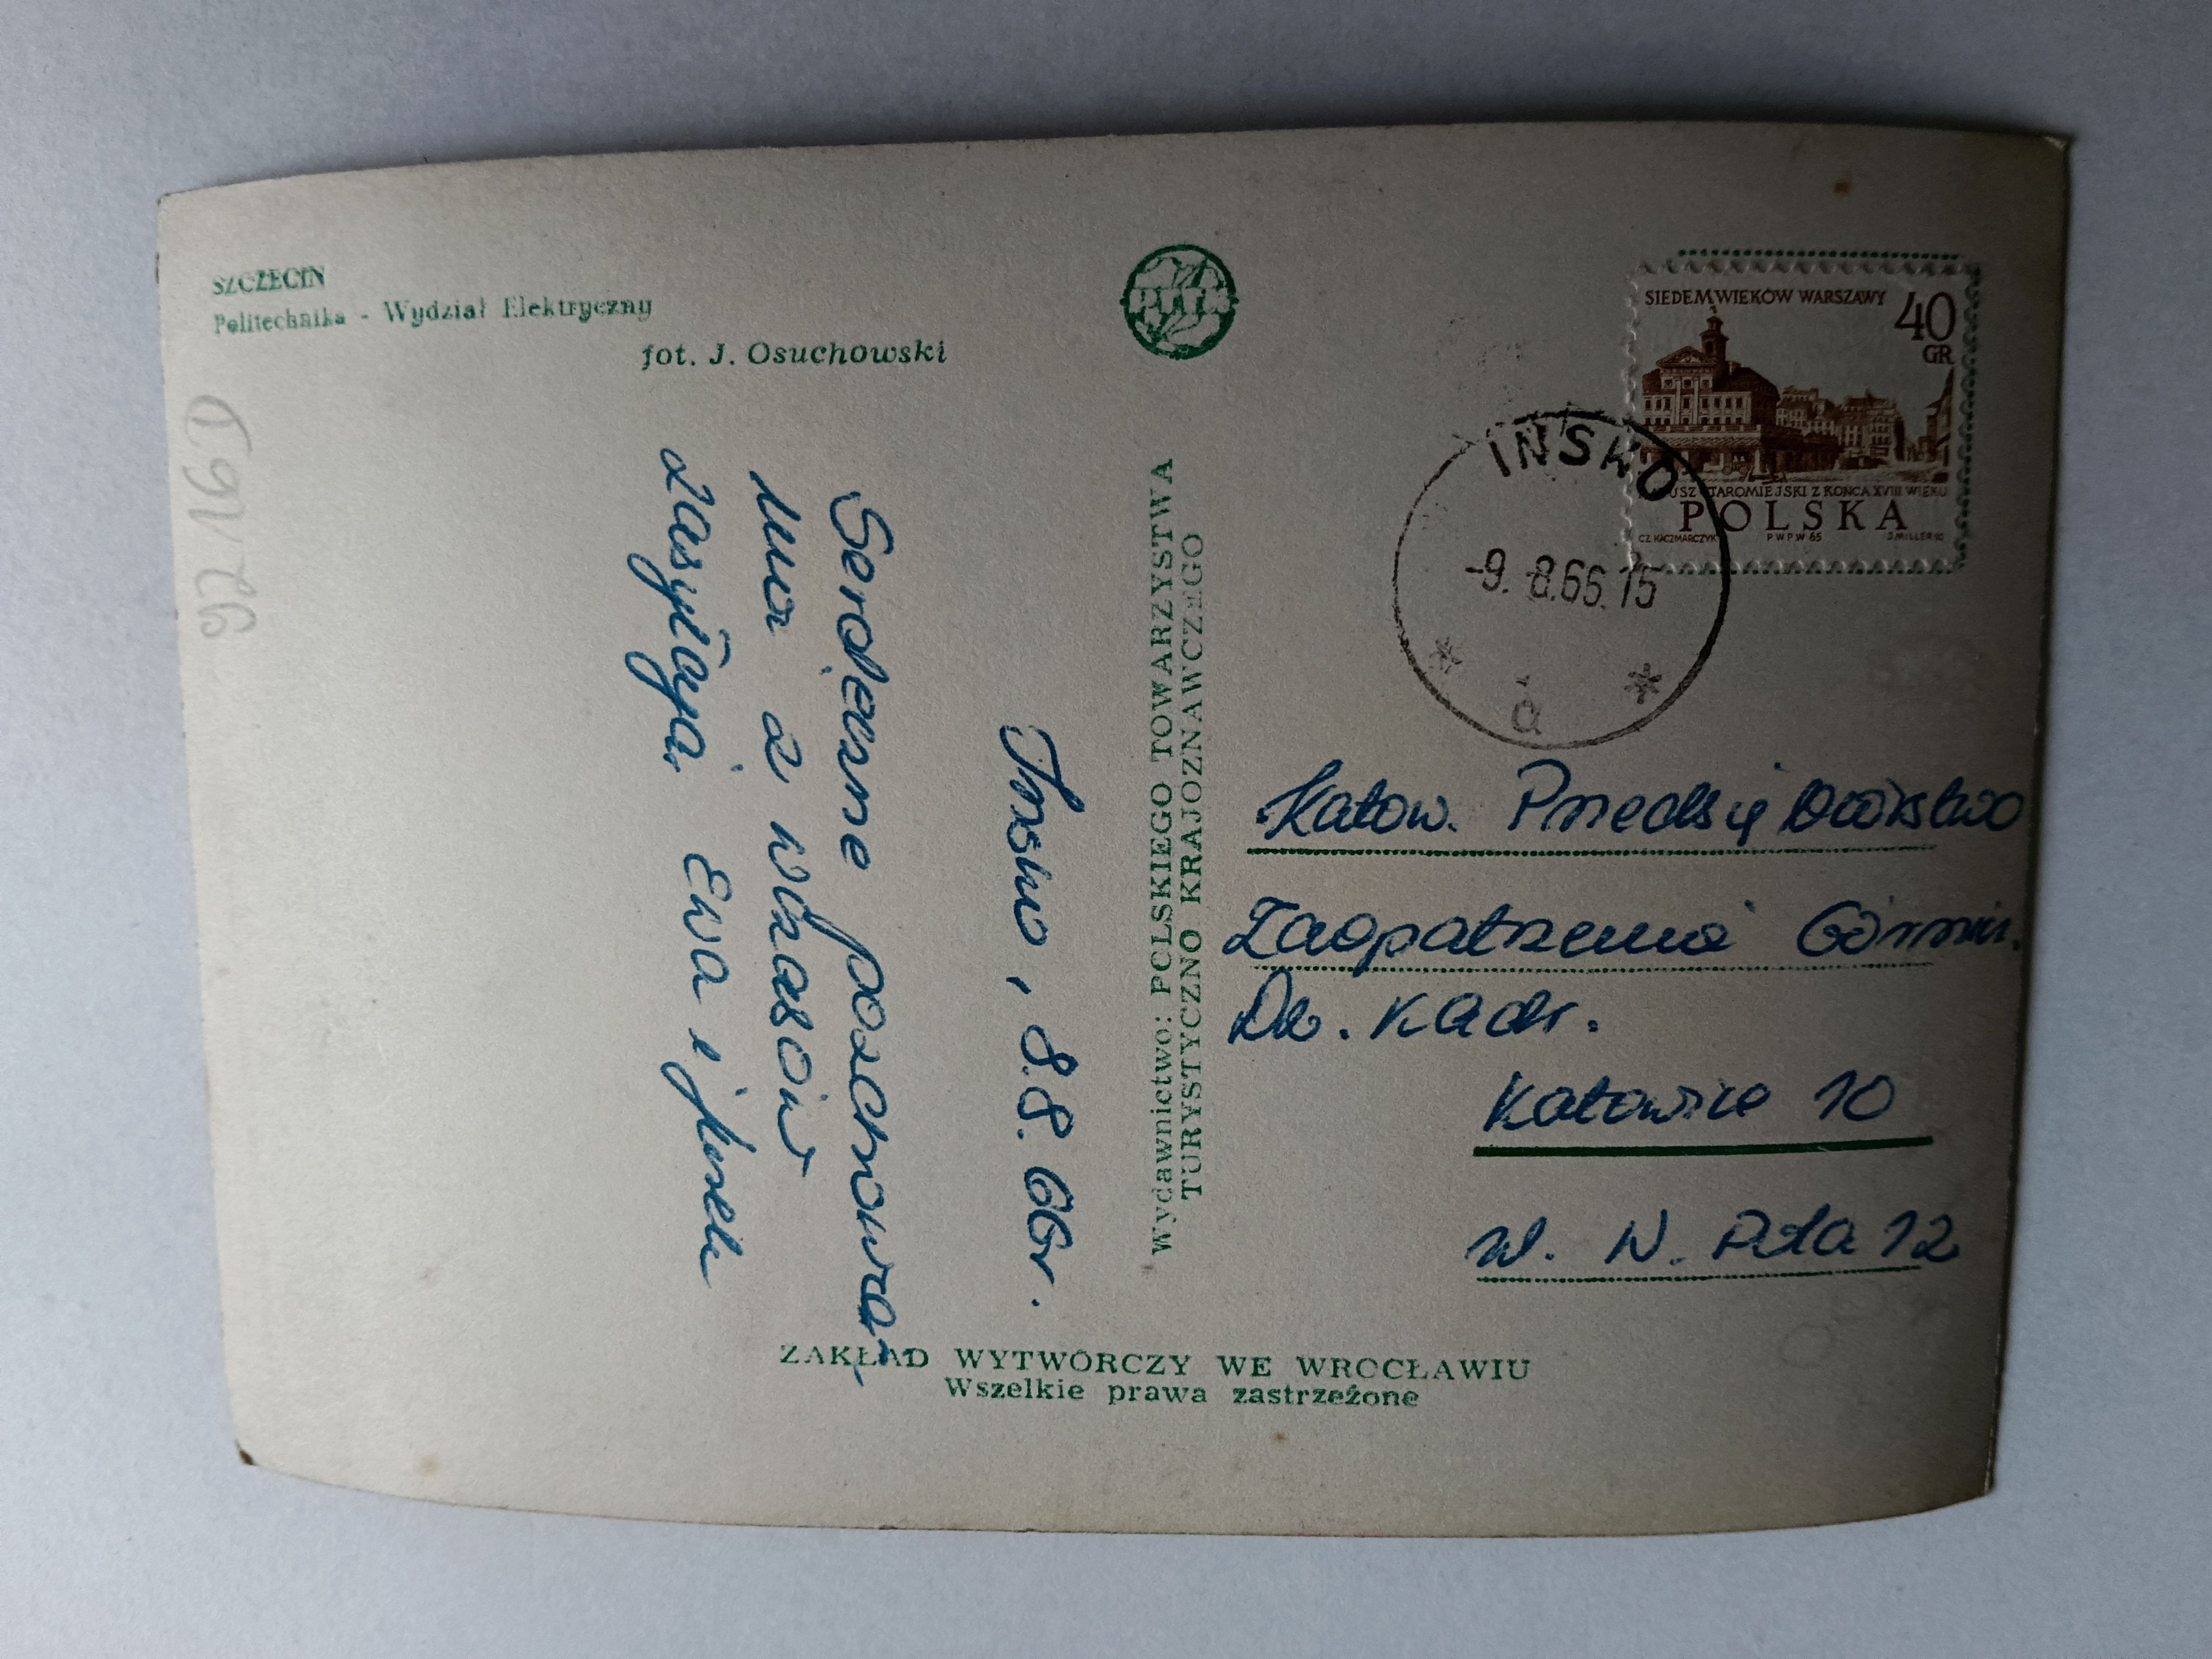 SZCZECIN
Politechnika - Wydział Elektryczny
fot. J. Osuchowski
92 16D
PTTK
SIEDEM WIEKÓW WARSZAWY 40
GR
RATUSZ STAROMIEJSKI Z KOŃCA XVIII WIEKU
POLSKA
CZ. KACZMARCZYK PWPW 65 J. MILLER SC.
IŃSKO
-9. -8.66.15
* a *
Ińsko, 8.8.66r.
Serdeczne pozdrowie-
nia z wczasów
zasyłają Ewa i
Wydawnictwo: POLSKIEGO TOWARZYSTWA
TURYSTYCZNO KRAJOZNAWCZEGO
Katow. Przedsiębiorstwo
Zaopatrzenia Górnicz.
Dz. Kadr.
Katowice 10
ul. N. Pola 12
ZAKŁAD WYTWÓRCZY WE WROCŁAWIU
Wszelkie prawa zastrzeżone